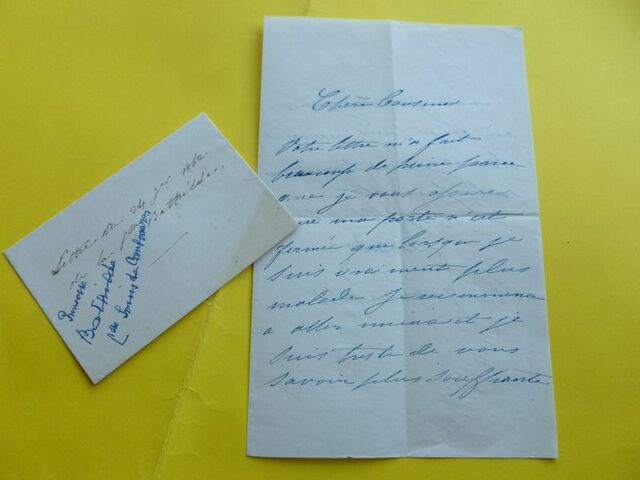 Chère Cousine
Votre lettre m'a fait
beaucoup de peine parce
que je vous assure
que ma porte n'est
fermée que lorsque je
suis vraiment plus
malade. Je recommence
a aller mieux et je
suis triste de vous
savoir plus souffrante
Lettre du 24 1862
de la
Bathilde
Princesse
Bathilde